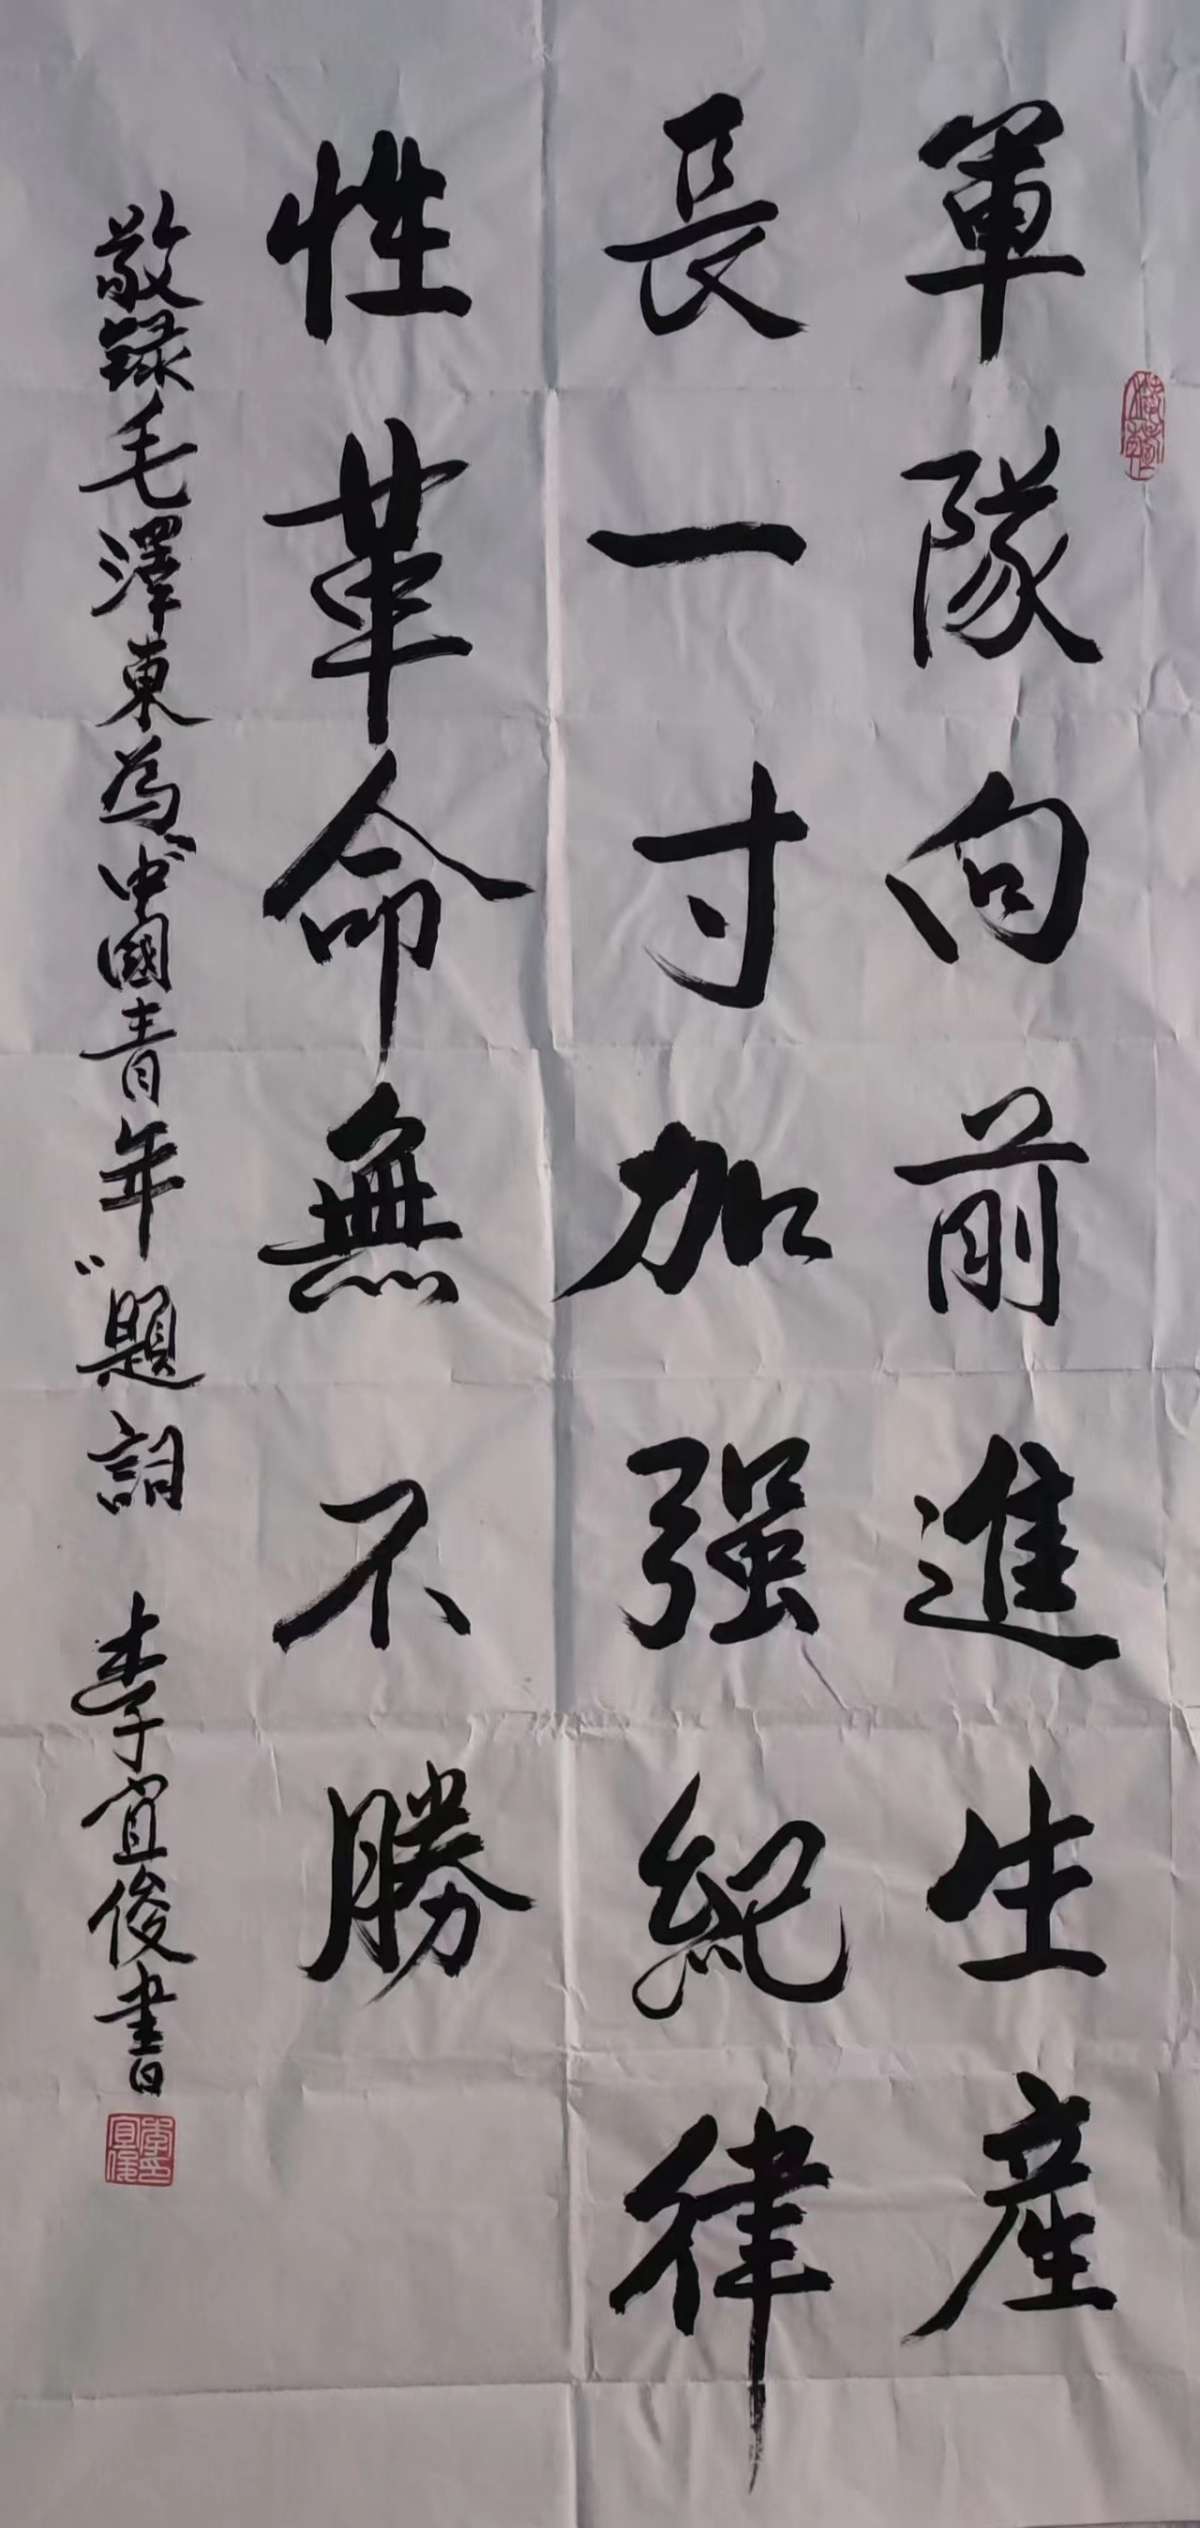 軍隊向前進生産
長一寸加强紀律
性革命無不勝
敬録毛澤東為“中國青年”題詞 李宜俊書